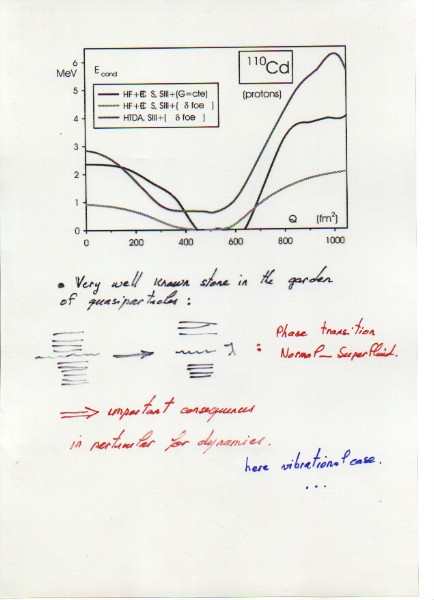 6
MeV
5
4
3
2
1
0
E cond
HF+BCS, SIII+(G=cte)
HF+BCS, SIII+( δ foe )
HTDA, SIII+( δ foe )
110Cd
(protons)
0 200 400 600 800 1000
Q (fm²)
• Very well known stone in the garden
of quasiparticles :
: Phase transition
Normal_Superfluid.
⇒ important consequences
in particular for dynamics.
here vibrational case.
...